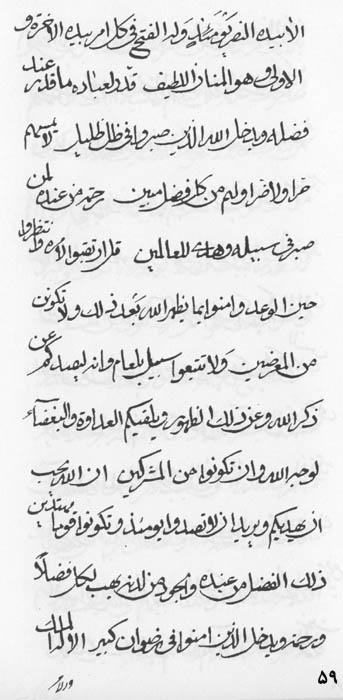 الأبيده النصر يومئذ وله الفتح في كل امر بيده الآخرة و
الاولى و هو المنان اللطيف قد دلعباده ما قدر عند
فضله ويدخل الله الذين صبروا في ظل ظليل لا يمسهم
حر ولا قر ولهم من كل فضل مبين رحمة من عنده لمن
صبر في سبيله وهدى للعالمين قل ارتقبوا الامر وانتظروا
حين الوعد وامنوا بما يظهر الله بعد ذلك ولا تكونن
من المعرضين ولا تتبعوا سبيل بلعام وانه ليصدكم عن
ذكر الله وعن ذلك الظهور ويلقيكم العداوة والبغضاء
لوجه الله وان تكونوا من المشركين ان الله يحب
ان يهديكم ويريد ان لا تصدوا يومئذ وتكونوا قوما مهتدين
ذلك الفضل من عنده والجود من لدنه يهب لكل فضلاً
ورحمة ويدخل الذين امنوا في رضوان كبير الا له الملك
۵۹